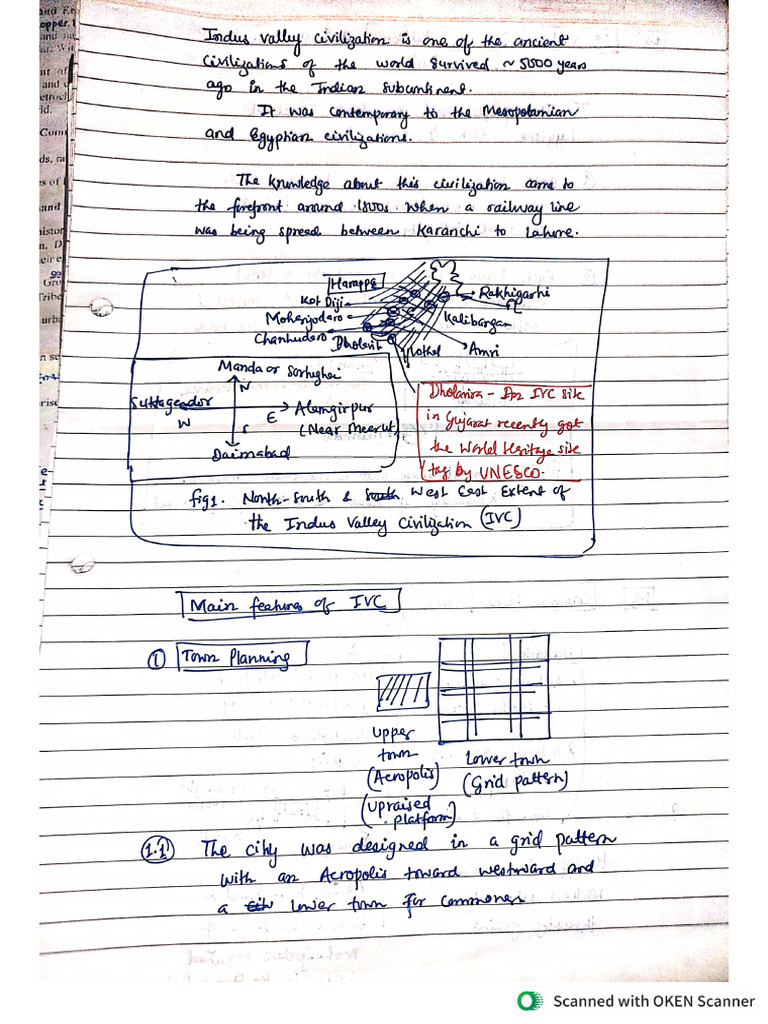 Indus valley civilization is one of the ancient
civilizations of the world survived ~ 5500 years
ago in the Indian subcontinent.
It was contemporary to the Mesopotamian
and Egyptian civilizations.
The knowledge about this civilization came to
the forefront around 1800s when a railway line
was being spread between Karanchi to Lahore.
Harappa
Rakhigarhi
Kot Diji
Mohenjodaro
Kalibangan
Chanhudaro
Dholavira
Lothal
Amri
Manda or Sorhughai
N
Suktagendor
W
E
Alamgirpur
(Near Meerut)
S
Daimabad
Dholavira - An IVC site
in Gujarat recently got
the World Heritage site
tag by UNESCO.
fig1. North-South & South West East Extent of
the Indus Valley Civilization (IVC)
Main features of IVC
① Town Planning
Upper
town
(Acropolis)
(Upraised
platform)
Lower town
(Grid pattern)
1.1 The city was designed in a grid pattern
with an Acropolis toward westward and
a lower town for commoners
Scanned with OKEN Scanner